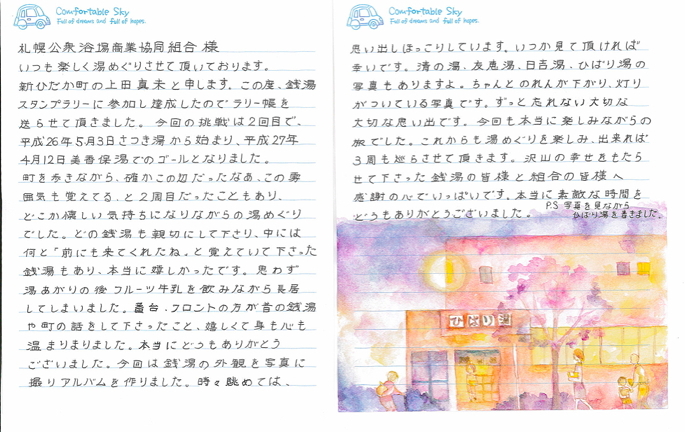 Comfortable Sky
Full of dreams and full of hopes.
札幌公衆浴場商業協同組合 様
いつも楽しく湯めぐりさせて頂いております。
新ひだか町の上田真未と申します。この度、銭湯
スタンプラリーに参加し達成したのでラリー帳を
送らせて頂きました。今回の挑戦は2回目で、
平成26年5月3日さつき湯から始まり、平成27年
4月12日美香保湯でのゴールとなりました。
町を歩きながら、確かこの辺だったなあ、この雰
囲気も覚えてる、と2周目だったこともあり、
どこか懐しい気持ちになりながらの湯めぐり
でした。どの銭湯も親切にして下さり、中には
何と"前にも来てくれたね。"と覚えていて下さった
銭湯もあり、本当に嬉しかったです。思わず
湯あがりの後フルーツ牛乳を飲みながら長居
してしまいました。番台、フロントの方が昔の銭湯
や町の話をして下さったこと、嬉しくて身も心も
温まりまりました。本当にどうもありがとう
ございました。今回は銭湯の外観を写真に
撮りアルバムを作りました。時々眺めては、
Comfortable Sky
Full of dreams and full of hopes.
思い出しほっこりしています。いつか見て頂ければ
幸いです。清の湯、友恵湯、日吉湯、ひばり湯の
写真もありますよ。ちゃんとのれんが下がり、灯り
がついている写真です。ずっと忘れない大切な
大切な思い出です。今回も本当に楽しみながらの
旅でした。これからも湯めぐりを楽しみ、出来れば
3周も巡らさせて頂きます。沢山の幸せをもたら
せて下さった銭湯の皆様と組合の皆様へ
感謝の心でいっぱいです。本当に素敵な時間を
どうもありがとうございました。
P.S 写真を見ながら
ひばり湯を書きました。
ひばり湯